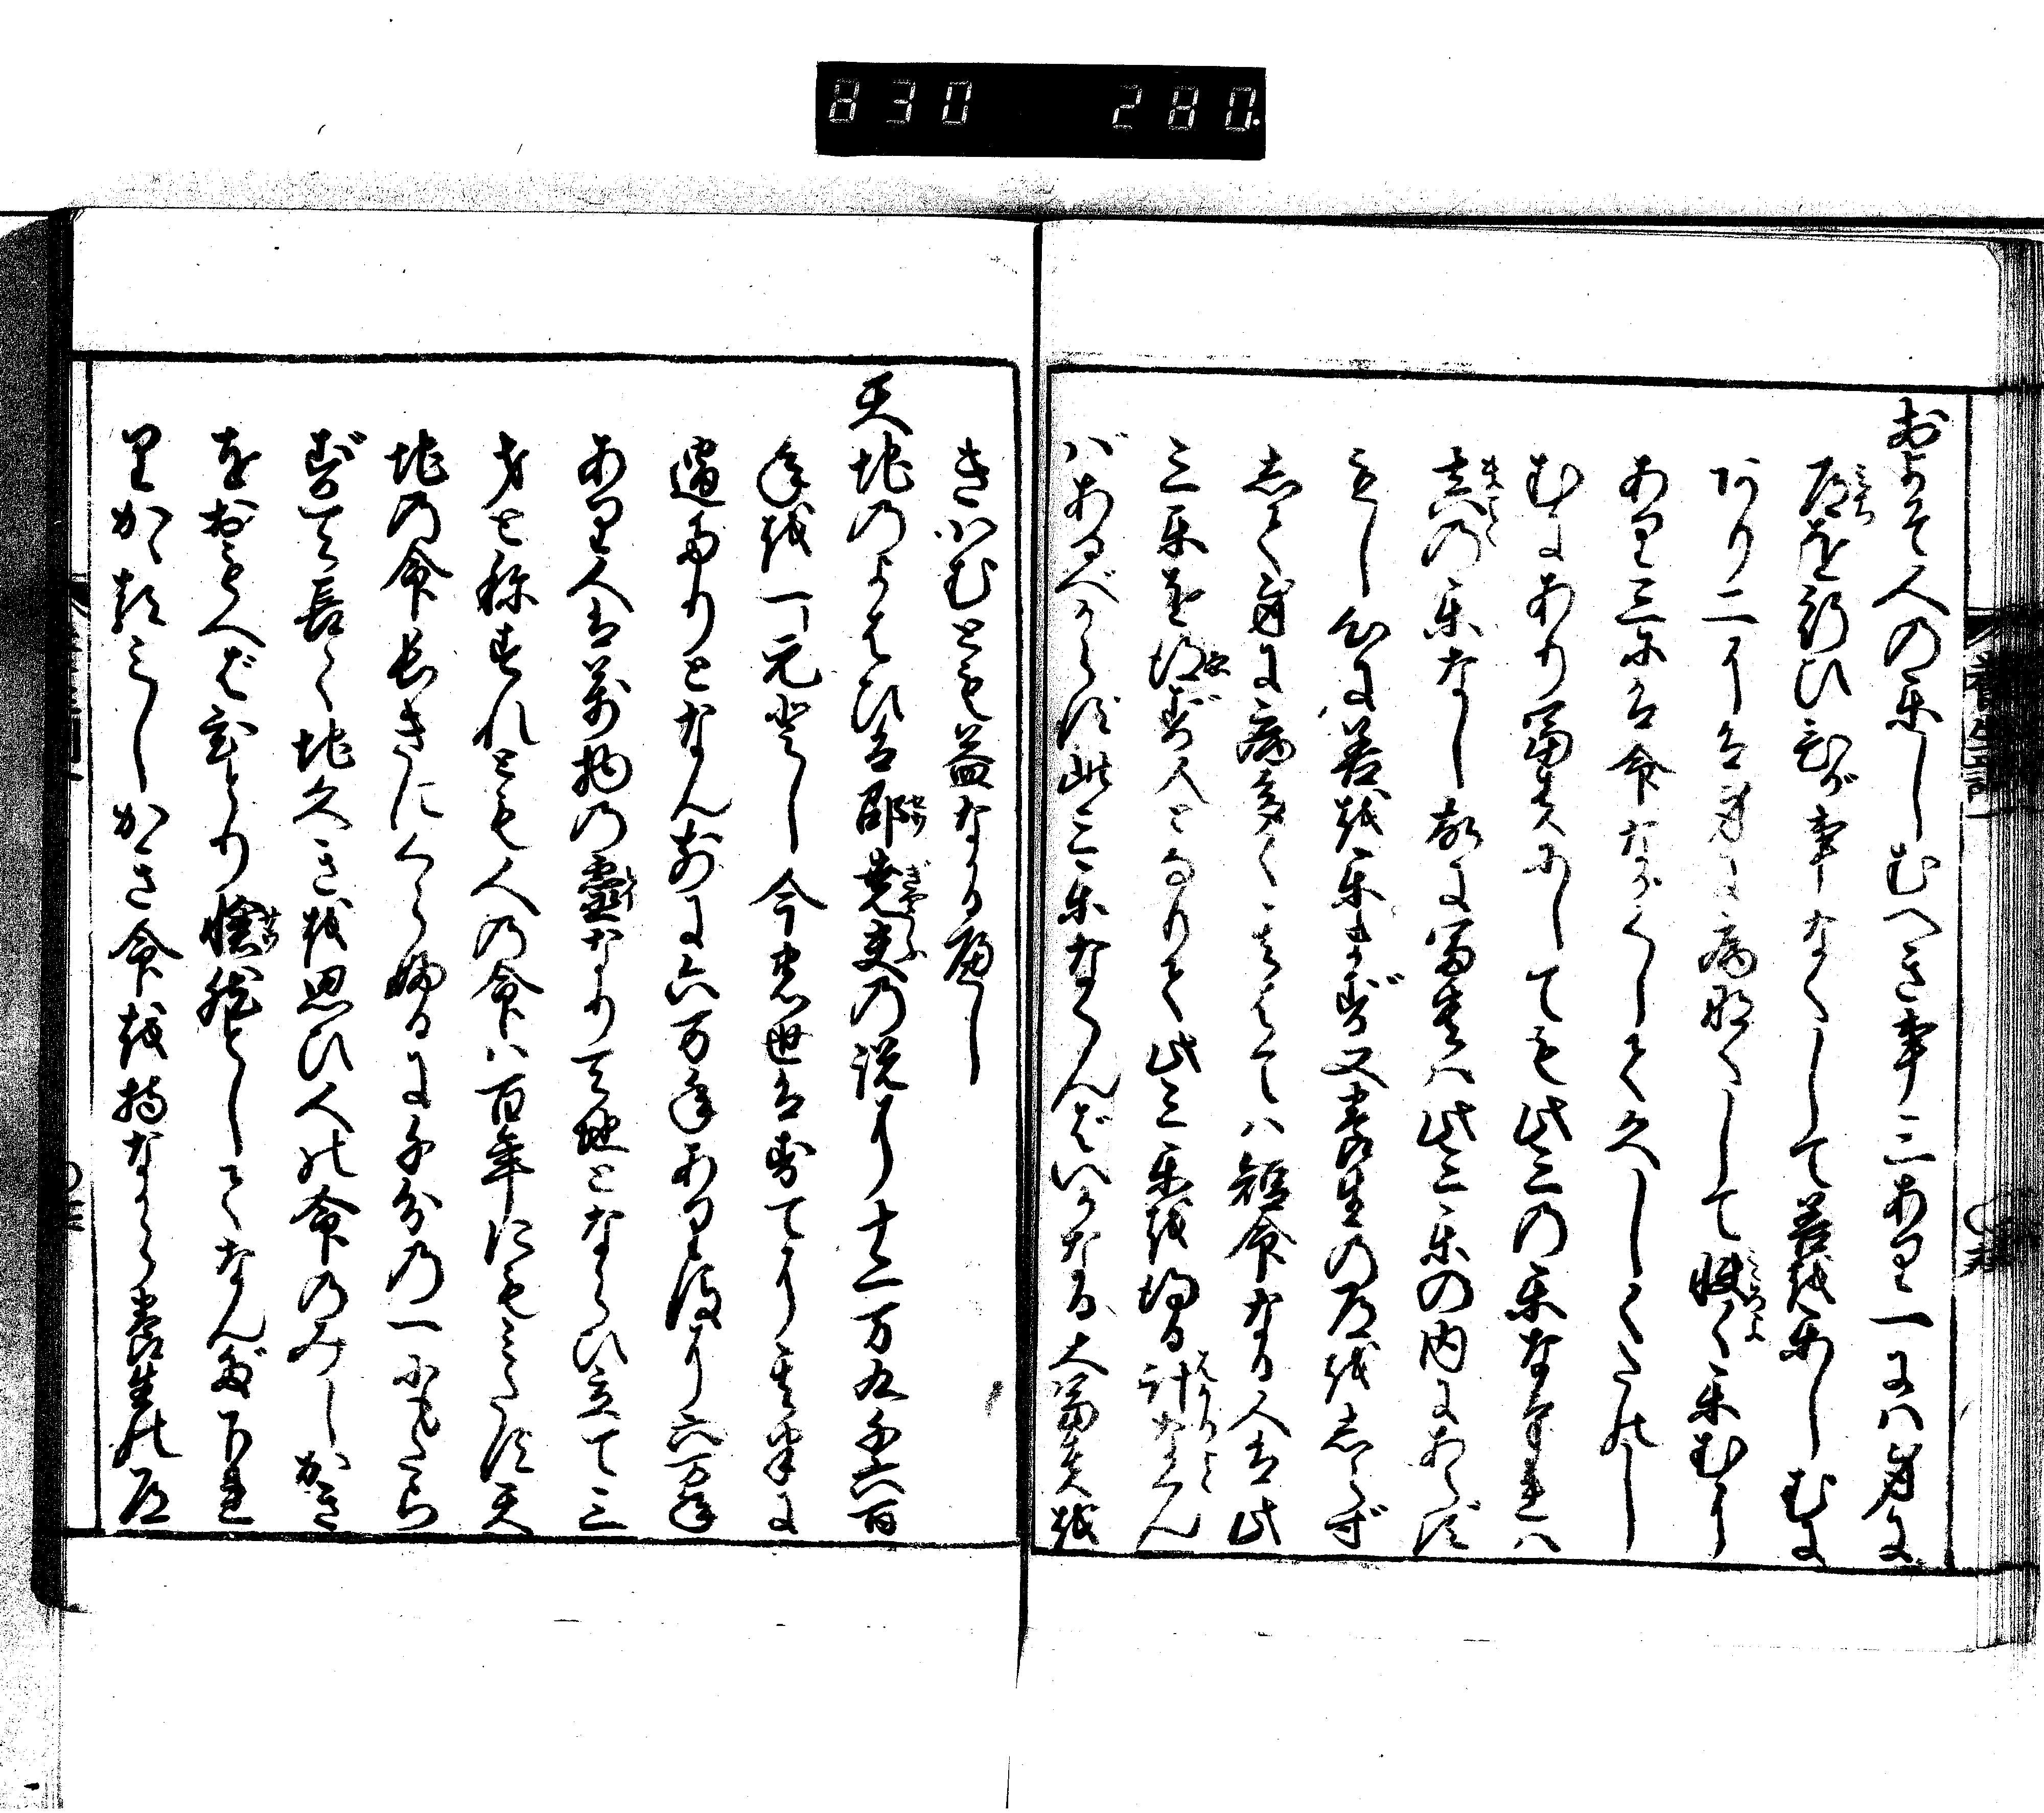 830 280
およそ人の楽しむへき事三あり一には身に
道を行ひひが事なくして善を楽しむに
あり二には身に病なくして快く楽むに
あり三には命ながくして久しくたのし
むにあり富貴にしても此三の楽なければ
真の楽なし故に富貴は此三楽の内にあらず
もし心に善を楽まず又養生の道をしらず
して身に病多く其はては短命なる人は此
三楽を得ず人となりて此三楽を得る計なくん
ばあるべからず此三楽なくんばいかなる大富貴を
きはむとも益なかるべし
天地のよはひは邵尭夫の説に十二万九千六百
年を一元とし今の世はすでに其半に
過たりとなん前に六万年あり後に六万年
あり人は万物の霊なり天地とならび立て三
才と称すれども人の命は百年にもみたず天
地の命長きにくらぶるに千分の一にもたら
ず天長く地久きを思ひ人の命のみじかき
をおもへばひとり愴然としてなんだ下れ
りかゝるみじかき命を持ながら養生の道